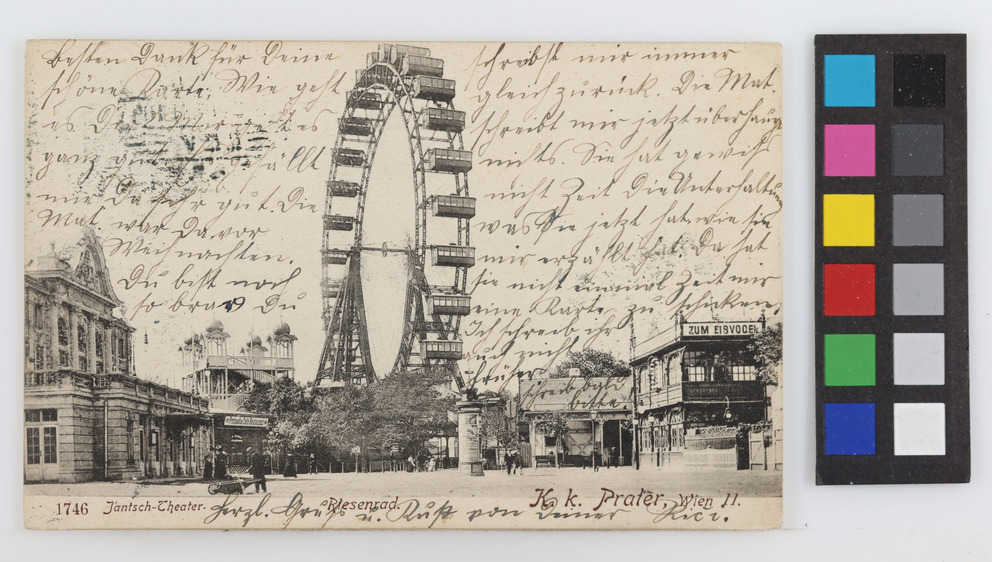 Besten Dank für Deine
schöne Karte. Wie geht
es Dir? Mir geht es
ganz gut. gefällt
mir Da sehr gut. Die
Mat. war Da vor
Weihnachten.
Du bist noch
so brav Du
schreibst mir immer
gleich zurück. Die Mat.
schreibt mir jetzt überhaupt
nichts. Sie hat gewiß
nicht Zeit Die Unterhaltu
was Sie jetzt hat, wie Sie
mir erzählt hat. Da hat
sie nicht einmal Zeit mir
eine Karte zu schicken
Ich schreib ihr
auch nicht
früher
schreib bald
bitte
ZUM EISVOGEL
1746 Jantsch-Theater. Riesenrad. K. k. Prater, Wien II.
Herzl. Gruß u. Kuß von Deiner Rici.